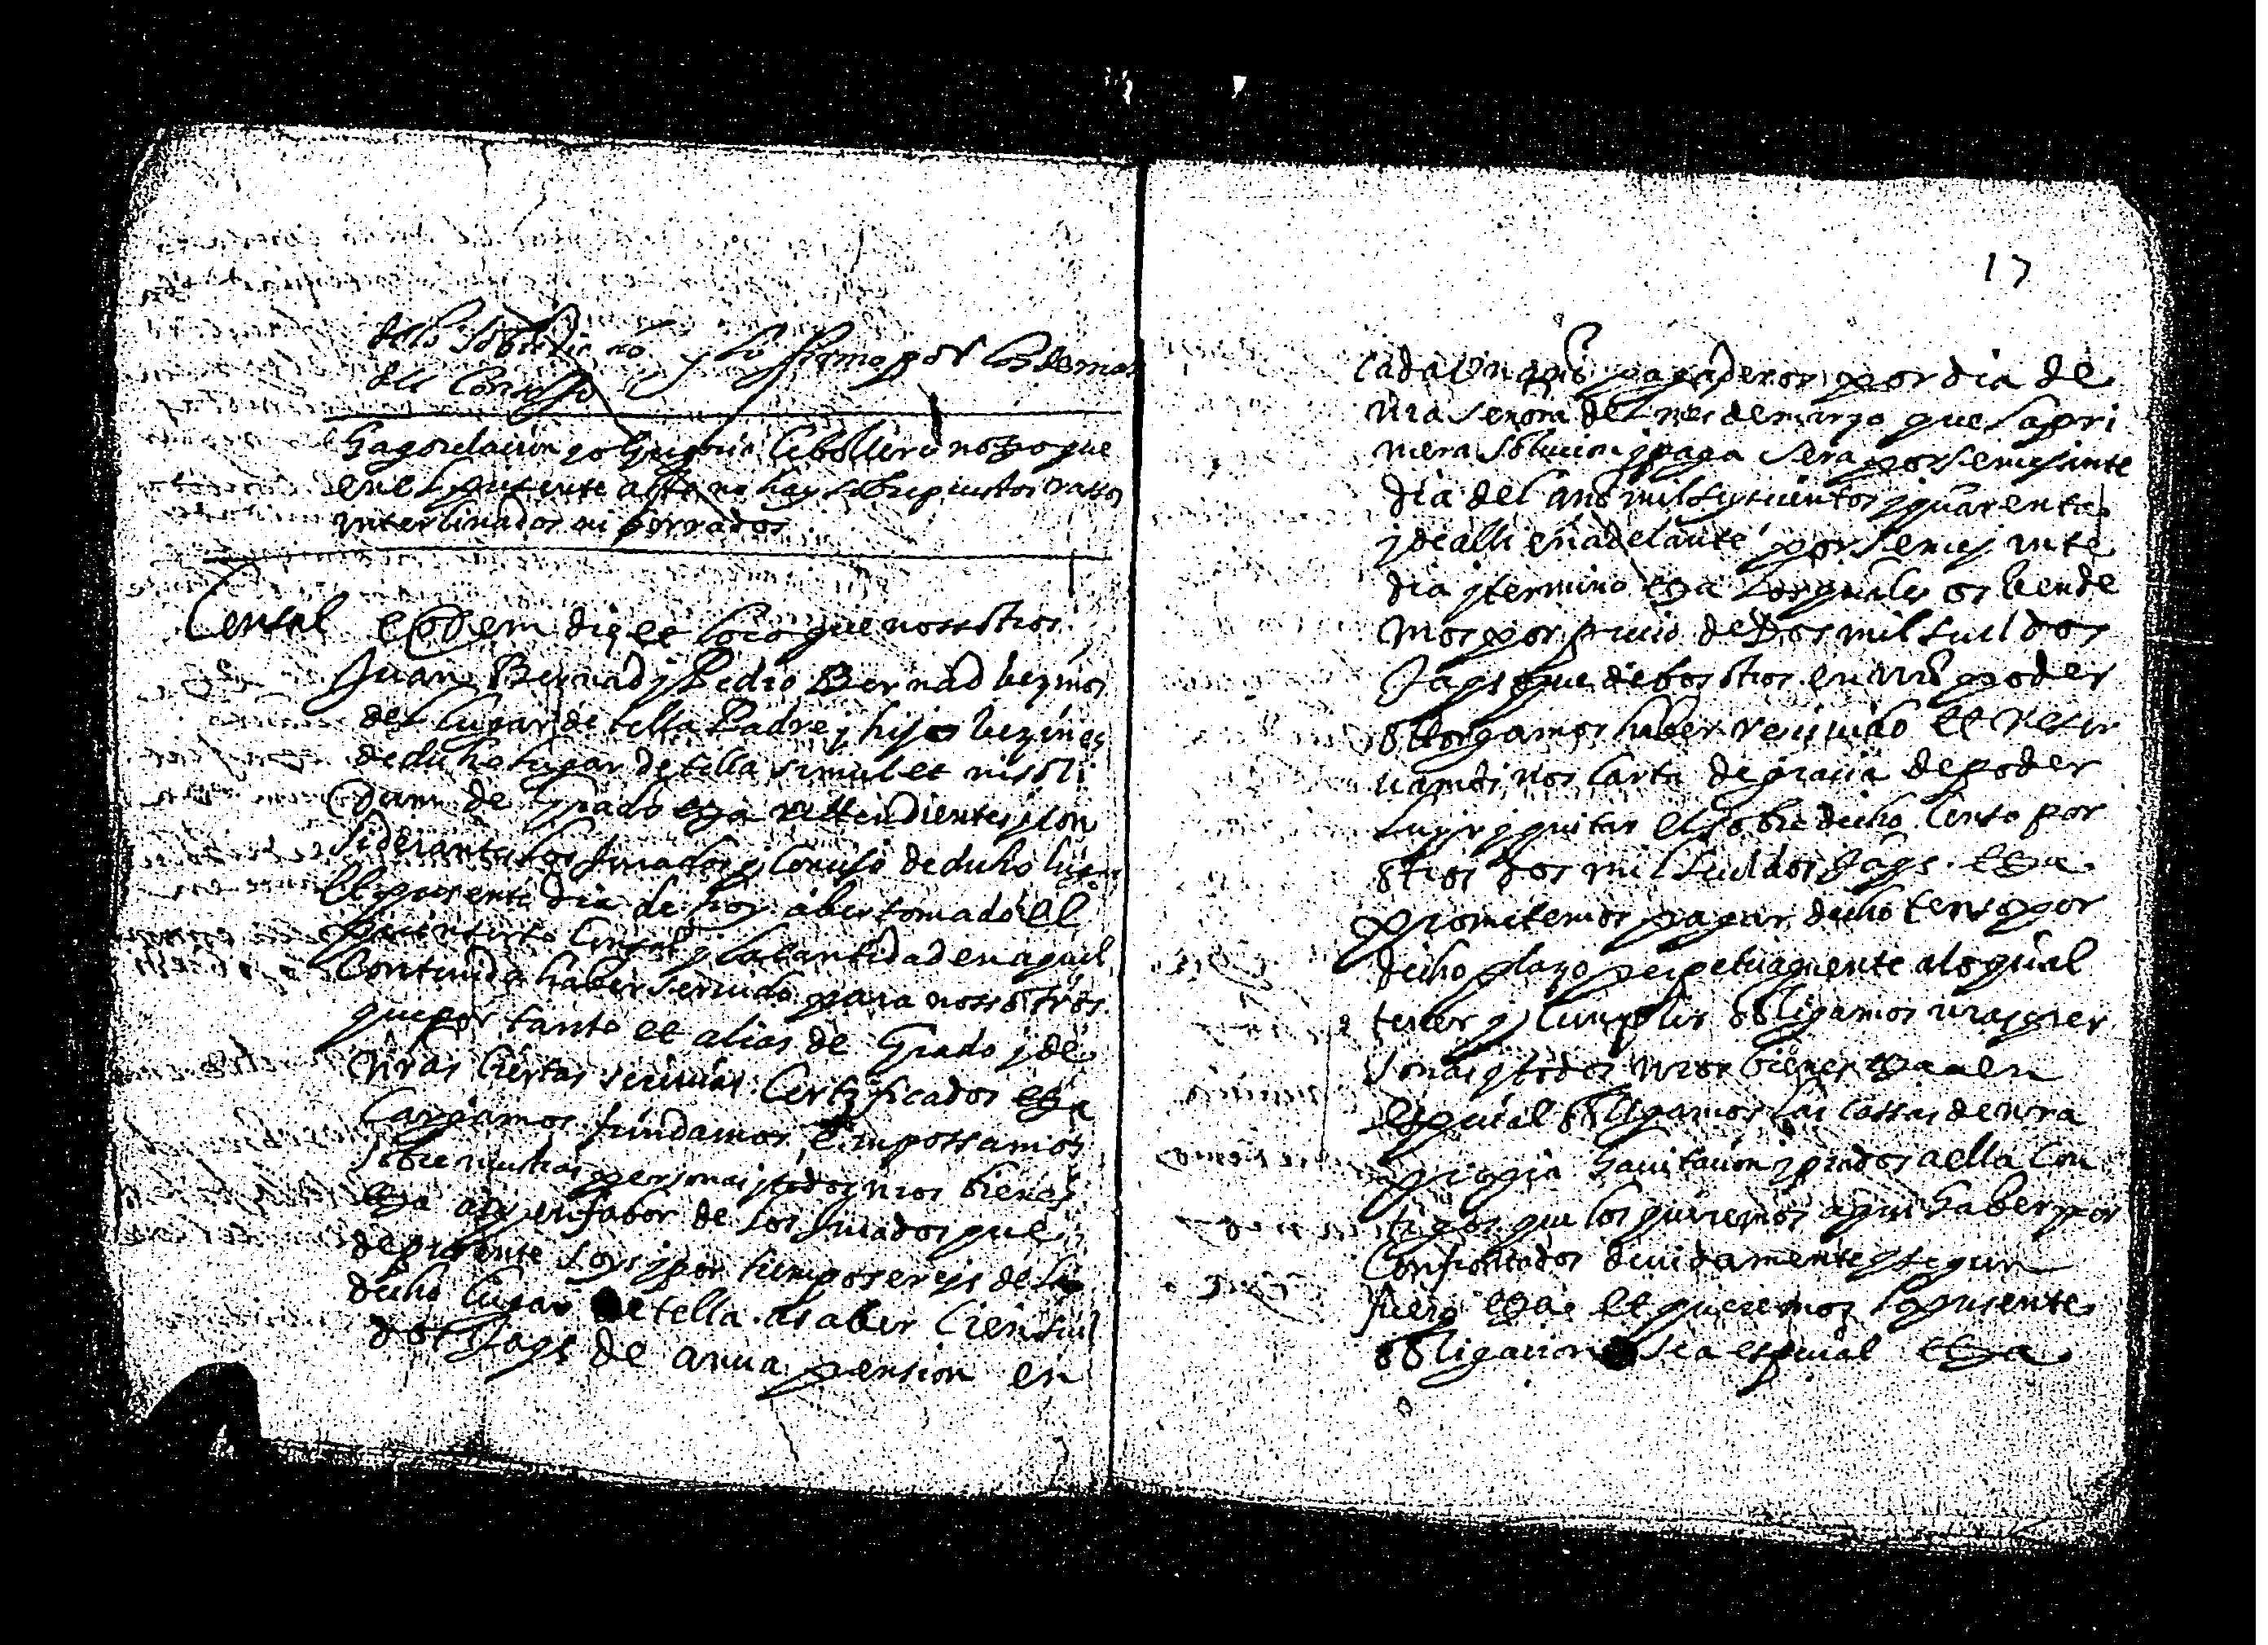 delo sobredicho y lo firmo por los demas
del Consejo
Hago relacion yo Gregorio Cebollero noto que
en el presente acto no hay sobrepuestos rassos
interlinados ni borrados
Censal eodem die et loco que nosotros
Juan Bernad y Pedro Bernad bezinos
del lugar de tella Padre y hijo bezinos
de dicho lugar de tella simul et insoli
dum de Grado etza attendientes y con
siderantes los Jurados y Consejo de dicho lugar
el presente dia de hoy aber tomado el
preinserto Censal y la cantidad en aquel
Contenida haber seruido para nosotros
que por tanto et alias de Grado y de
nras ciertas sciencias Certificados etza
Cargamos fundamos e impossamos
sobre nuestras personas y todos nros bienes
etza en fabor de los Jurados que
de presente soys y por tiempo sereys de
dicho lugar de tella a saber Cien suel
dos Jaqs de anua pension en
17
cada un año pagaderos por dia de
nra señora del mes de marzo que la pri
mera solucion y paga sera por semejante
dia del año mil seyscientos y quarenta
y de alli en adelante por semejante
dia y termino etza los quales os bende
mos por precio de Dos mil sueldos
Jaqs que de bosotros en nro poder
ottorgamos haber receuido et reser
uamos nos carta de gracia de poder
luyr y quitar el sobre dicho Censo por
otros dos mil sueldos Jaqs. etza
prometemos pagar dicho Censo por
dicho plazo perpetuamente a lo qual
tener y cumplir obligamos nras per
sonas y todos nros bienes etza en
especial obligamos las cassas de nra
propia hauitacion y prados a ella con
tigos que los queremos aqui haber por
Confrontados deuidamente y segun
fuero etza et queremos la presente
obligacion sea especial etza